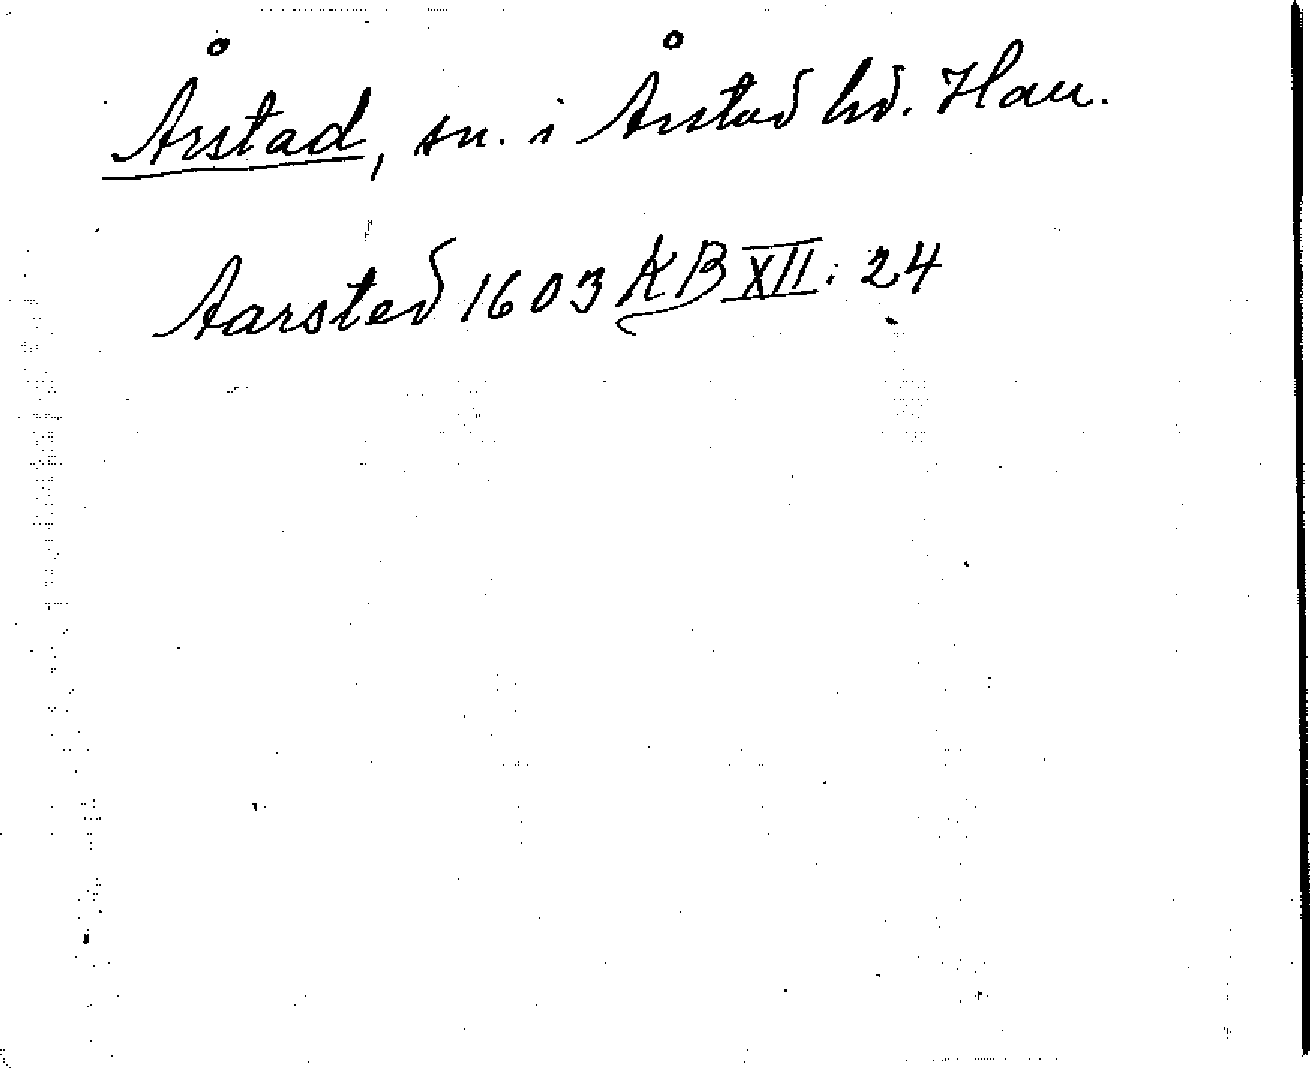 Årstad, sn. i Årstad hd. Hall.
Aarsted 1603 KB XII: 24